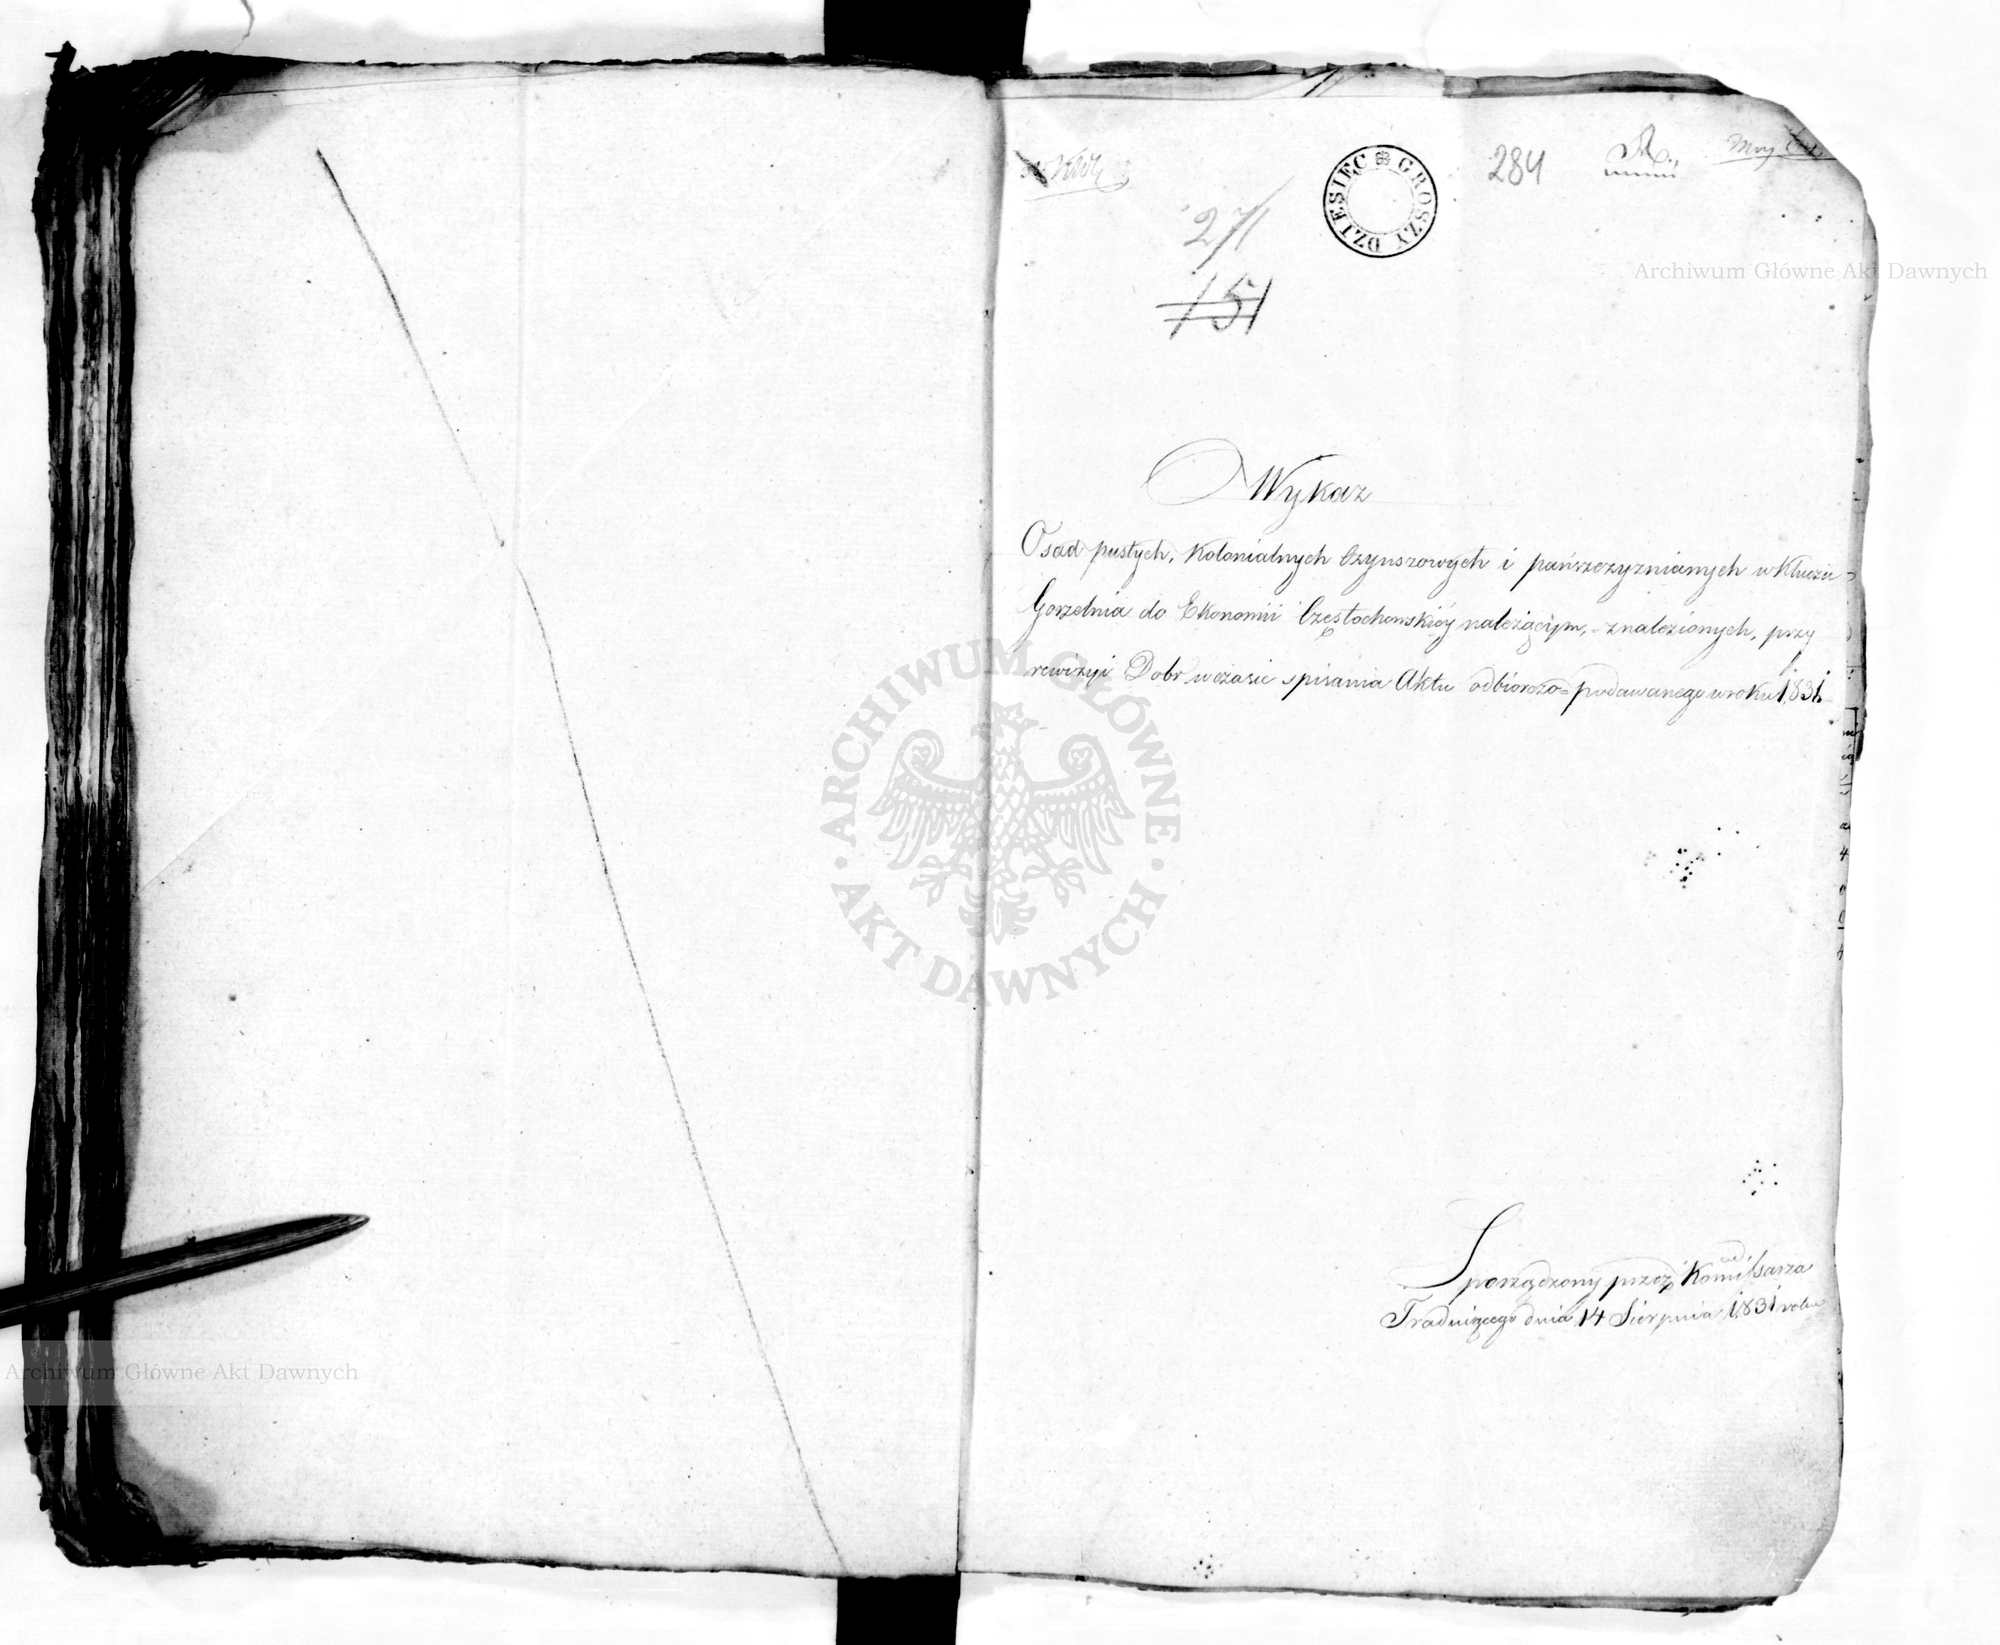 284
DZIESIĘC GROSZY
271
151
Wykaz
Osad pustych, kolonialnych Czynszowych i pańszczyznianych w Kluczu
Gorzelnia do Ekonomii Częstochowskiéy należącym, znalezionych, przy
rewizyi Dobr w czasie spisania Aktu odbiorczo=podawczego w roku 1831
Sporządzony przez Kommissarza
Tradującego dnia 14 Sierpnia 1831 roku
Archiwum Główne Akt Dawnych
ARCHIWUM GŁÓWNE · AKT DAWNYCH ·
Archiwum Główne Akt Dawnych